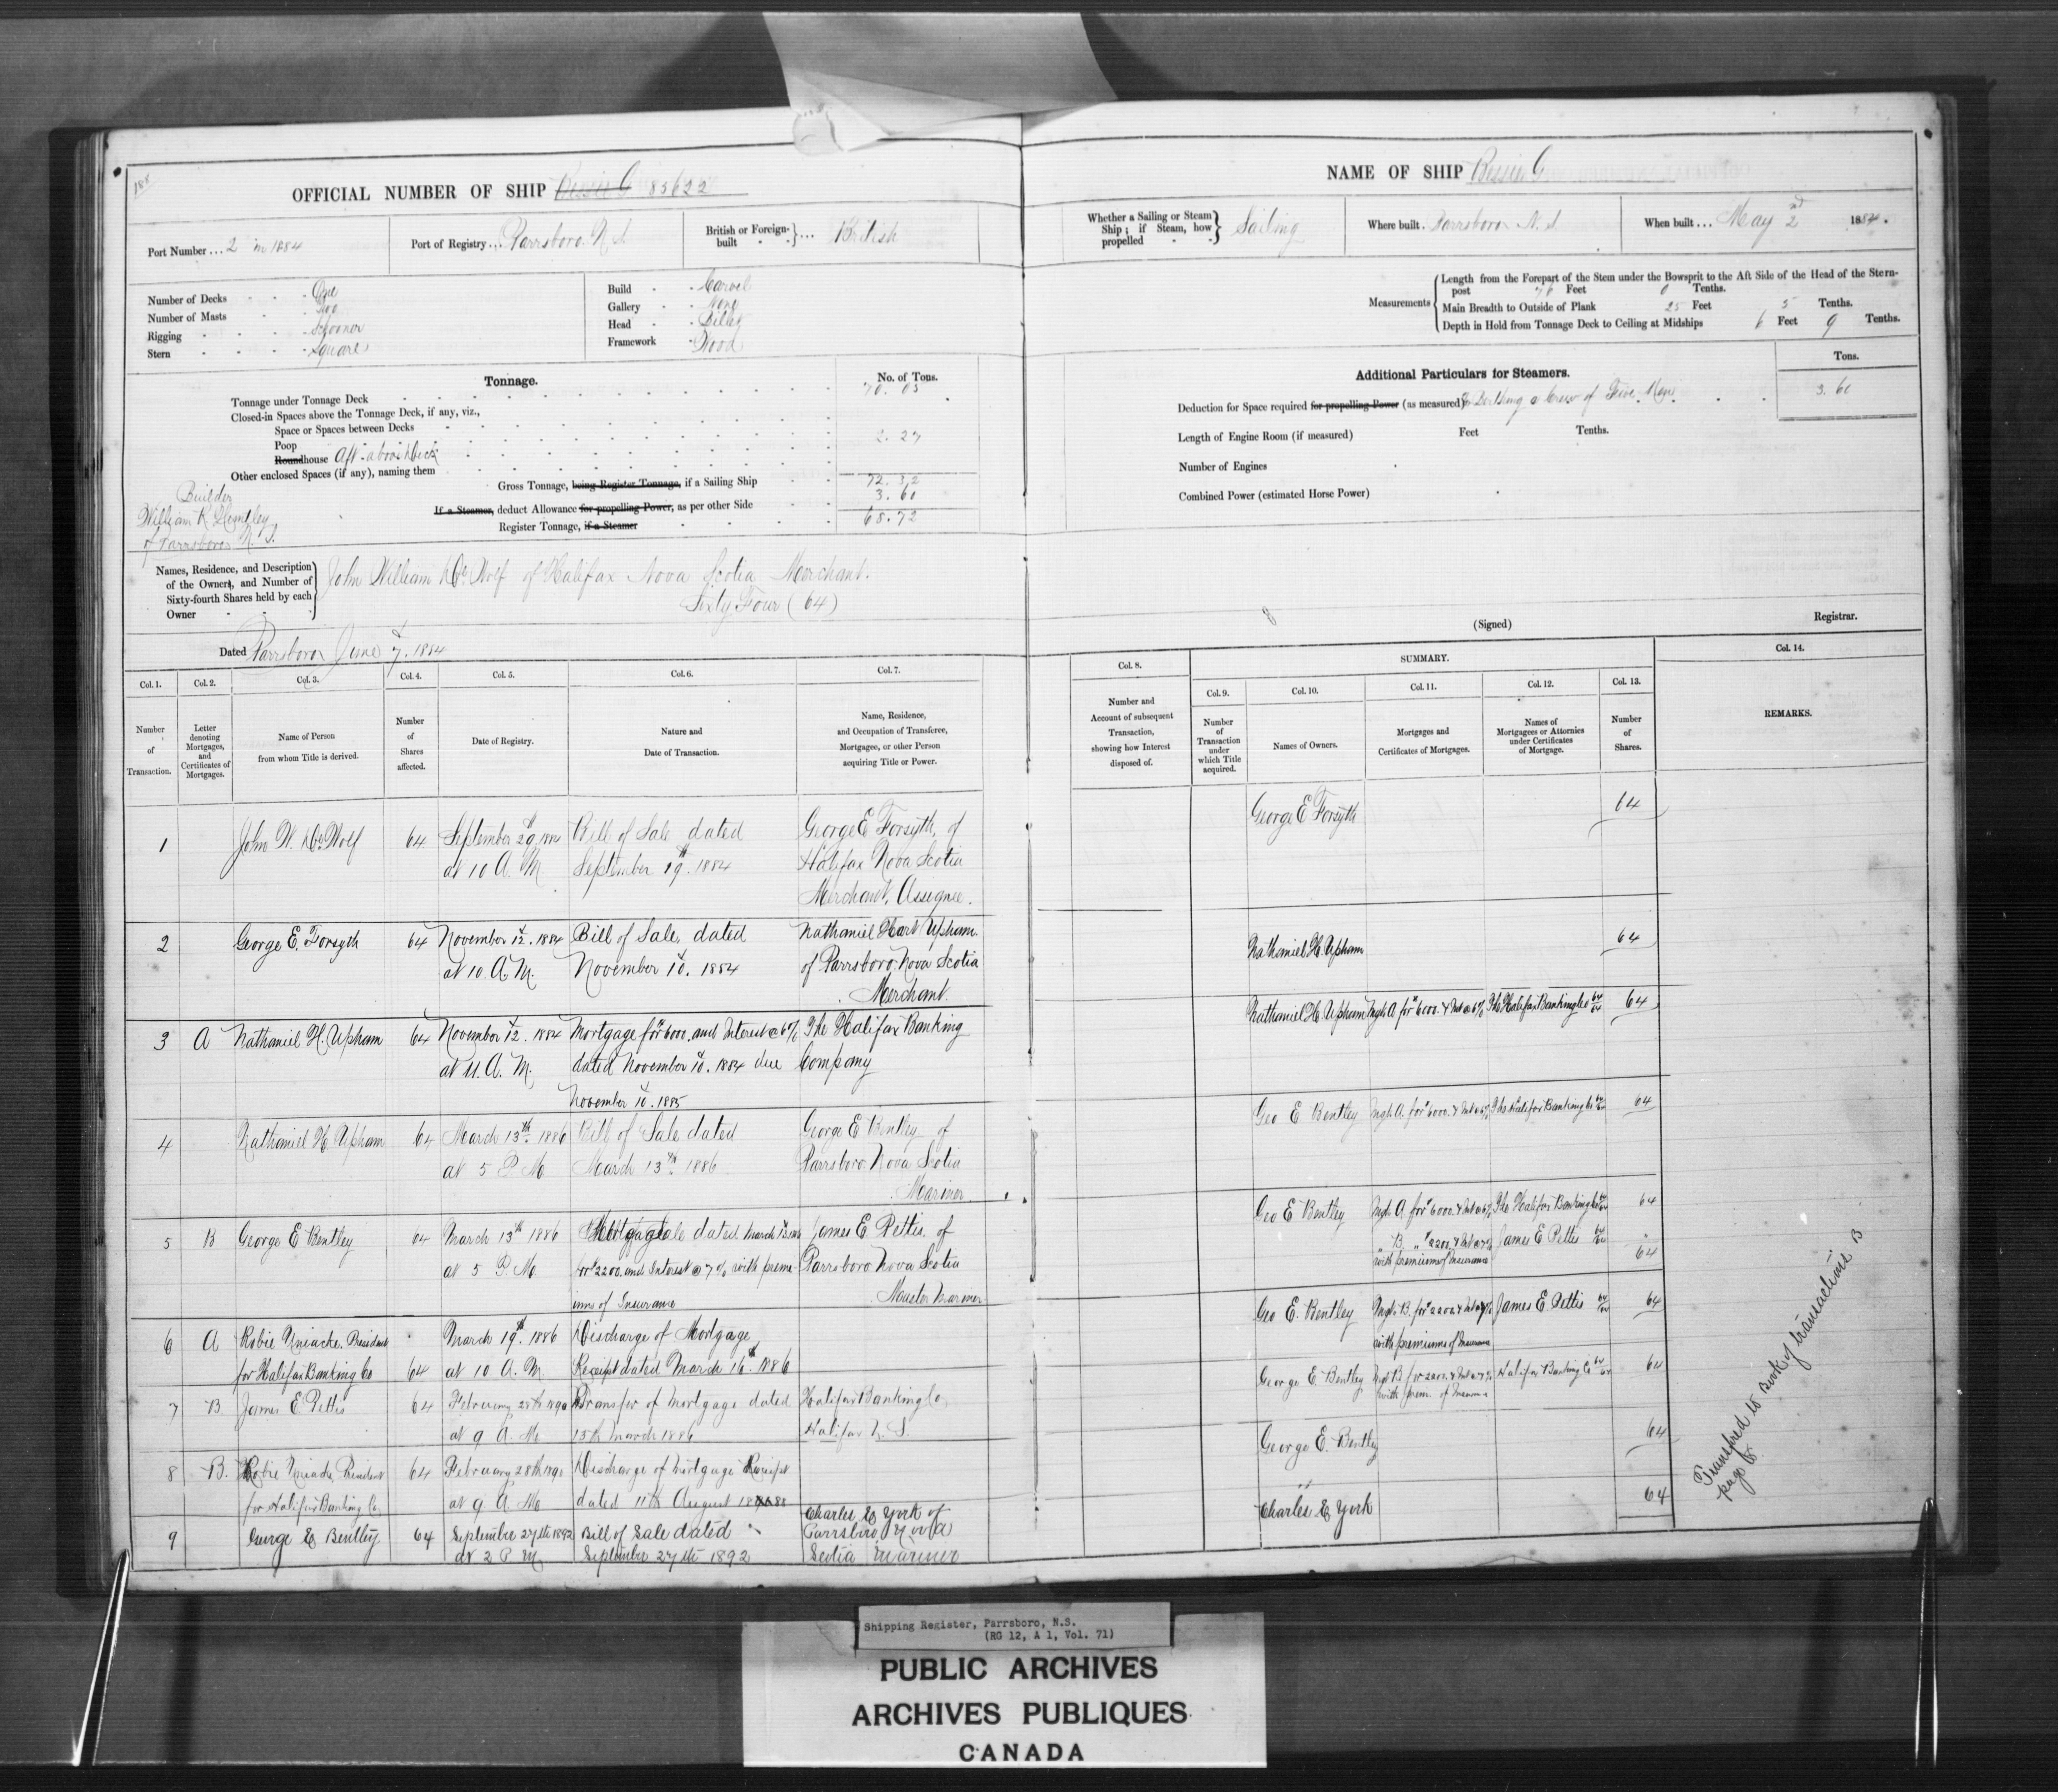 188
OFFICIAL NUMBER OF SHIP Bessie G 85622
Port Number ... 2 in 1884
Port of Registry ... Parrsboro N.S.
British or Foreign-built ... British
Number of Decks - One
Number of Masts - Two
Rigging - Schooner
Stern - Square
Build - Carvel
Gallery - None
Head - Billet
Framework - Wood
Tonnage.
No. of Tons.
Tonnage under Tonnage Deck 70.05
Closed-in Spaces above the Tonnage Deck, if any, viz.,
Space or Spaces between Decks
Poop 2.27
Roundhouse Aft above deck
Other enclosed Spaces (if any), naming them
Gross Tonnage, being Register Tonnage, if a Sailing Ship 72.32
If a Steamer, deduct Allowance for propelling Power, as per other Side 3.60
Register Tonnage, if a Steamer 68.72
Builder
William R. Huntley
of Parrsboro N.S.
Names, Residence, and Description of the Owners, and Number of Sixty-fourth Shares held by each Owner
John William DeWolf of Halifax Nova Scotia Merchant.
Sixty Four (64)
Dated Parrsboro June 7. 1884
NAME OF SHIP Bessie G.
Whether a Sailing or Steam Ship; if Steam, how propelled Sailing
Where built. Parrsboro N.S.
When built ... May 2nd 1884.
Measurements
Length from the Forepart of the Stem under the Bowsprit to the Aft Side of the Head of the Stern-
post 76 Feet 0 Tenths.
Main Breadth to Outside of Plank 25 Feet 5 Tenths.
Depth in Hold from Tonnage Deck to Ceiling at Midships 6 Feet 9 Tenths.
Additional Particulars for Steamers.
Tons.
Deduction for Space required for propelling Power (as measured) Berthing a Crew of Five Men 3.60
Length of Engine Room (if measured) Feet Tenths.
Number of Engines
Combined Power (estimated Horse Power)
(Signed) Registrar.
Col. 1. Col. 2. Col. 3. Col. 4. Col. 5. Col. 6. Col. 7.
Number of Transaction.
Letter denoting Mortgages, and Certificates of Mortgages.
Name of Person from whom Title is derived.
Number of Shares affected.
Date of Registry.
Nature and Date of Transaction.
Name, Residence, and Occupation of Transferee, Mortgagee, or other Person acquiring Title or Power.
Col. 8. SUMMARY. Col. 14.
Col. 9. Col. 10. Col. 11. Col. 12. Col. 13.
Number and Account of subsequent Transaction, showing how Interest disposed of.
Number of Transaction under which Title acquired.
Names of Owners.
Mortgages and Certificates of Mortgages.
Names of Mortgagees or Attornies under Certificates of Mortgage.
Number of Shares.
REMARKS.
1 John W. DeWolf 64 September 29th 1884 Bill of Sale dated George E Forsyth, of
at 10 A.M. September 19th. 1884 Halifax Nova Scotia
Merchant, Assignee.
2 George E. Forsyth 64 November 12. 1884 Bill of Sale, dated Nathaniel Hart Upham
at 10. A.M. November 10. 1884 of Parrsboro Nova Scotia
Merchant.
3 A Nathaniel H. Upham 64 November 12. 1884 Mortgage for $6000. and Interest @ 6% The Halifax Banking
at 11. A.M. dated November 10. 1884 due Company
November 10. 1885
4 Nathaniel H. Upham 64 March 13th. 1886 Bill of Sale dated George E Bentley of
at 5 P.M. March 13th. 1886 Parrsboro Nova Scotia
Mariner
5 B George E Bentley 64 March 13th 1886 Mortgage dated March 13. 1886 James E Pettis. of
at 5 P.M. for $2200. and Interest @ 7% with premi- Parrsboro Nova Scotia
ums of Insurance Master Mariner
6 A Robie Uniacke. President March 19th. 1886 Discharge of Mortgage
for Halifax Banking Co 64 at 10 A.M. Receipt dated March 16th. 1886
7 B James E Pettis 64 February 28th 1890 Transfer of Mortgage dated Halifax Banking Co,
at 9 A.M. 15th March 1886 Halifax N.S.
8 B. Robie Uniacke President 64 February 28th 1890 Discharge of Mortgage Receipt
for Halifax Banking Co, at 9 A.M. dated 11th August 1888
9 George E Bentley 64 September 27th 1892 Bill of Sale dated Charles E York of
at 2 P.M. September 27th 1892 Parrsboro Nova
Scotia Mariner
George E Forsyth 64
Nathaniel H. Upham 64
Nathaniel H. Upham Mgh A for $6000. & Int @ 6% The Halifax Banking Co 64/64 64
Geo E Bentley Mgh A. for $6000. & Int @ 6% The Halifax Banking Co 64/64 64
Geo E Bentley Mgh A for $6000. & Int @ 6% The Halifax Banking Co 64/64 64
" B. " $2200. & Int @ 7% James E Pettis 64/64 "
with premiums of Insurance 64
Geo E. Bentley Mgh B. for $2200. & Int @ 7% James E. Pettis 64/64 64
with premiums of Insurance
George E. Bentley Mgh B for $2200. & Int @ 7% Halifax Banking Co 64/64 64
with prem. of Insurance
George E. Bentley 64
Charles E York 64
Transfered to Book of transactions B
page 8.
Shipping Register, Parrsboro, N.S.
(RG 12, A 1, Vol. 71)
PUBLIC ARCHIVES
ARCHIVES PUBLIQUES
CANADA